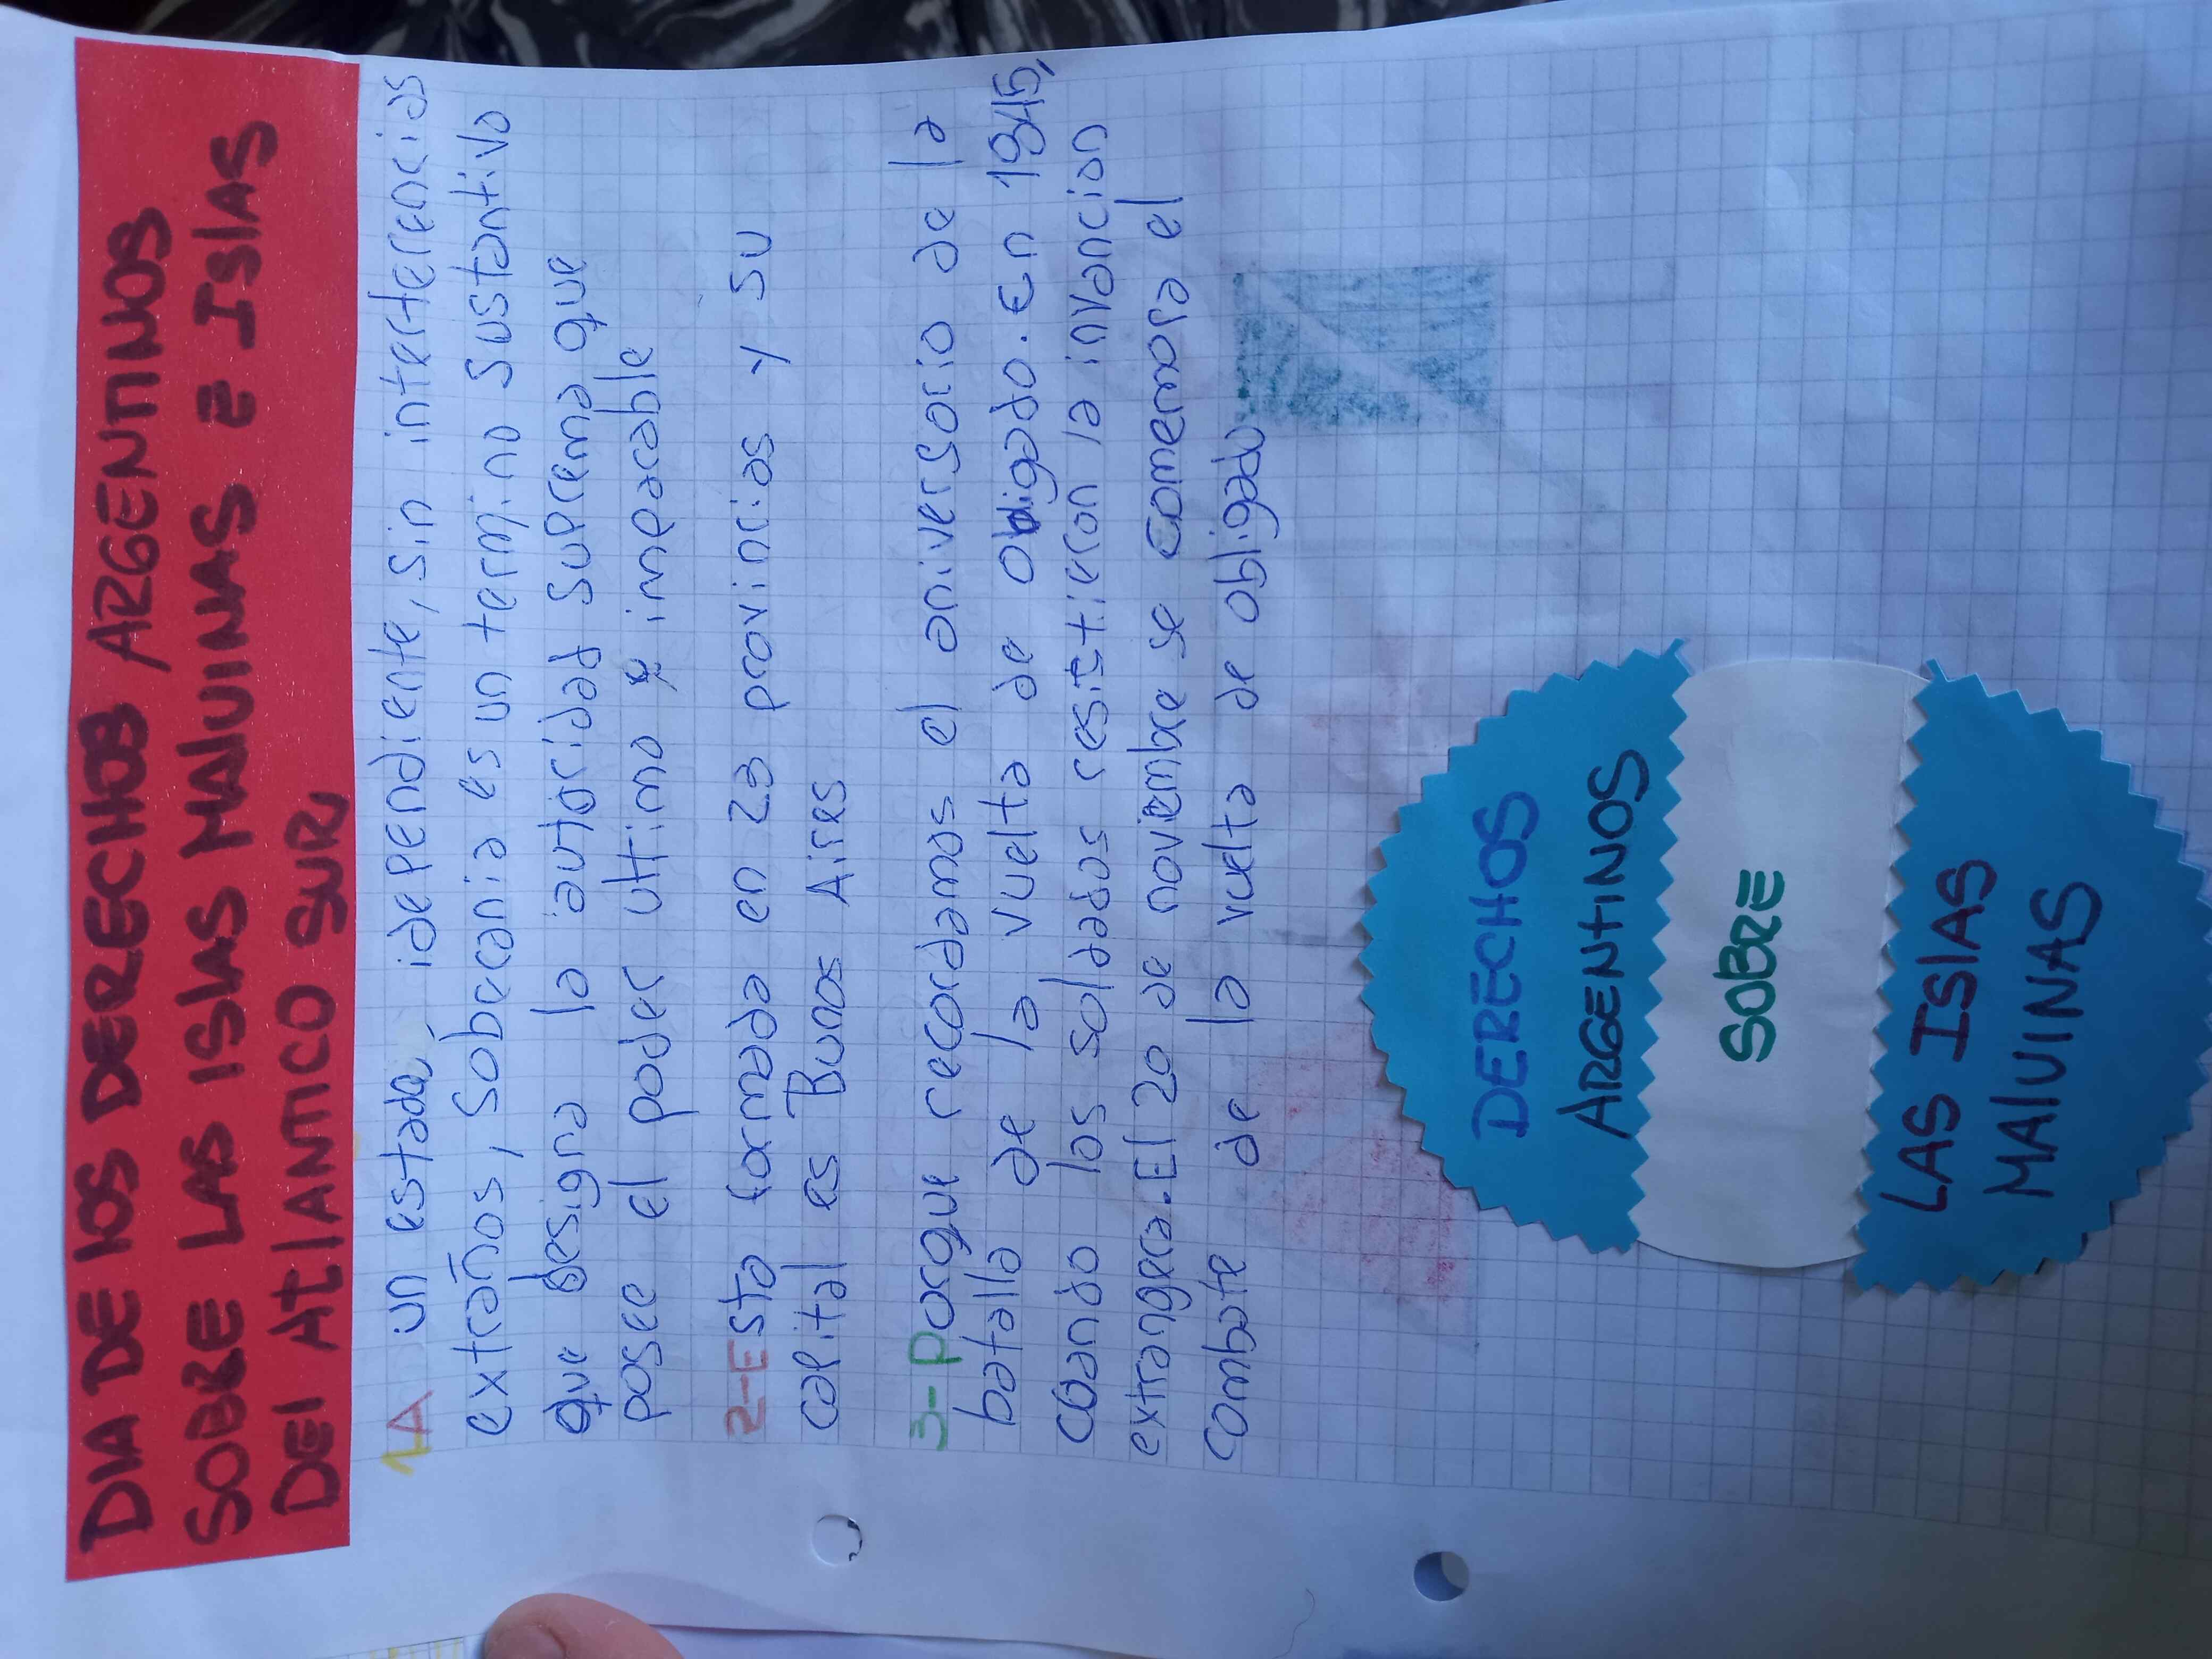 DIA DE lOS DERECHOS ARGENTINOS
SOBRE LAS ISlAS MAlVINAS E ISlAS
DEl AtlANTICO SUR
1A un estado, idependiente, sin interferencias
extraños, Soberania es un termino sustantivo
que designa la autoridad suprema que
posee el poder ultimo e inepacable
2-Esta formada en 23 provincias y su
capital es Bunos Aires
3-Porque recordamos el aniversario de la
batalla de la vuelta de Obligado. En 1845,
cuando los soldados resistieron la invancion
extrangera. El 20 de noviembre se comemora el
Combate de la vuelta de obligado
DERECHOS
ARGENTINOS
SOBRE
LAS ISlAS
MAlVINAS